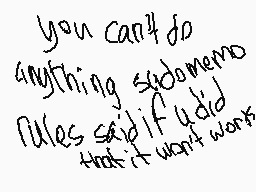 you can't do
anything sudomemo
rules said if u did
that it won't work